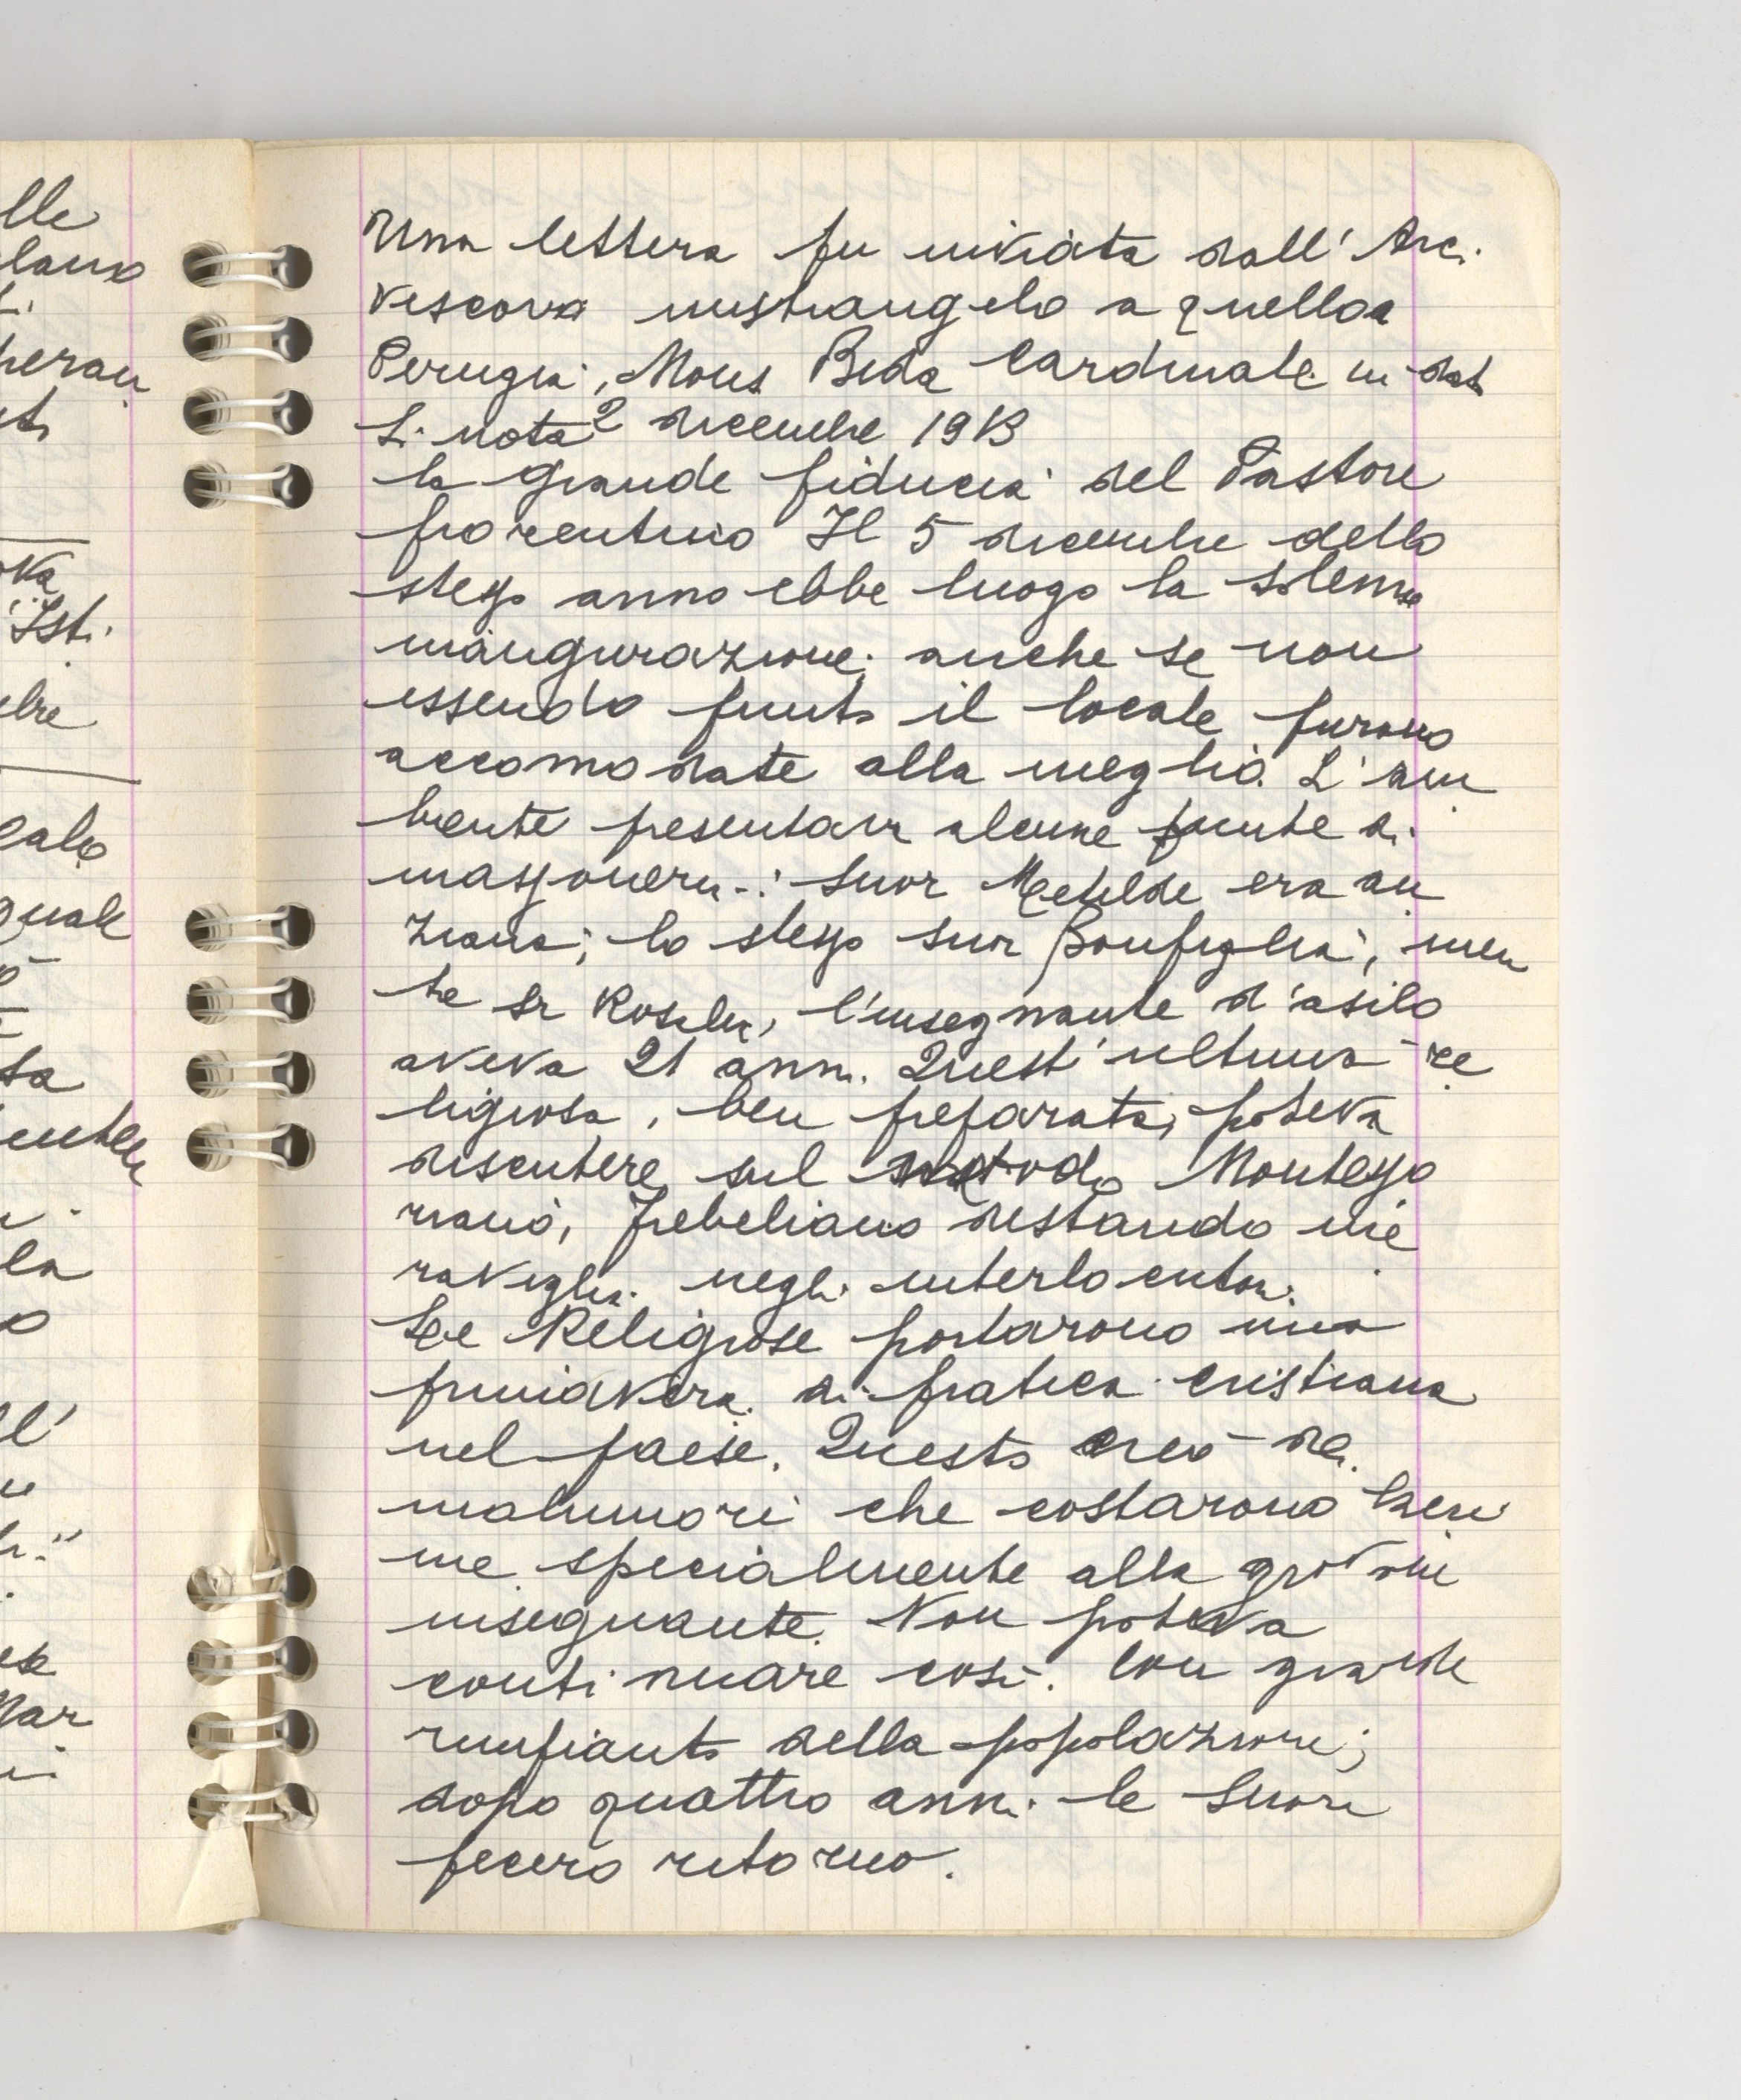 lle
lano
heran
nti
Isti
ebre
cale
quale
ta
la
o
ll'
Mar
Una lettera fu inviata dall'Arci
vescovo mistrangelo a quello a
Perugia, Mons Beda Cardinale in dat
Si nota 2 dicembre 1913
la grande fiducia del Pastore
fiorentino Il 5 dicembre dello
stesso anno ebbe luogo la solenne
inaugurazione, anche se non
essendo finito il locale furono
accomodate alla meglio. L'am
biente presentava alcune punte di
massoneria: Suor Metilde era an
ziana; lo stesso suor Bonfiglia, men
tre Sr Rosalia, l'insegnante d'asilo
aveva 21 anni. Quest'ultima re
ligiosa, ben preparata, poteva
discutere sul metodo Montesso
riano, Frebeliano destando me
raviglia negli interlocutori.
Le Religiose portarono una
primavera di pratica cristiana
nel paese. Questo creò dei
malumori che costarono lacri
me specialmente alla giovane
insegnante. Non poteva
continuare così. Con grande
rimpianto della popolazione;
dopo quattro anni le Suore
fecero ritorno.